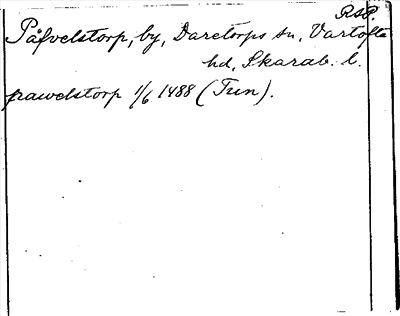 RAP.
Påfvelstorp, by, Daretorps sn, Vartofta
hd, Skarab. l.
pawelstorp 1/6 1488 (Tun).